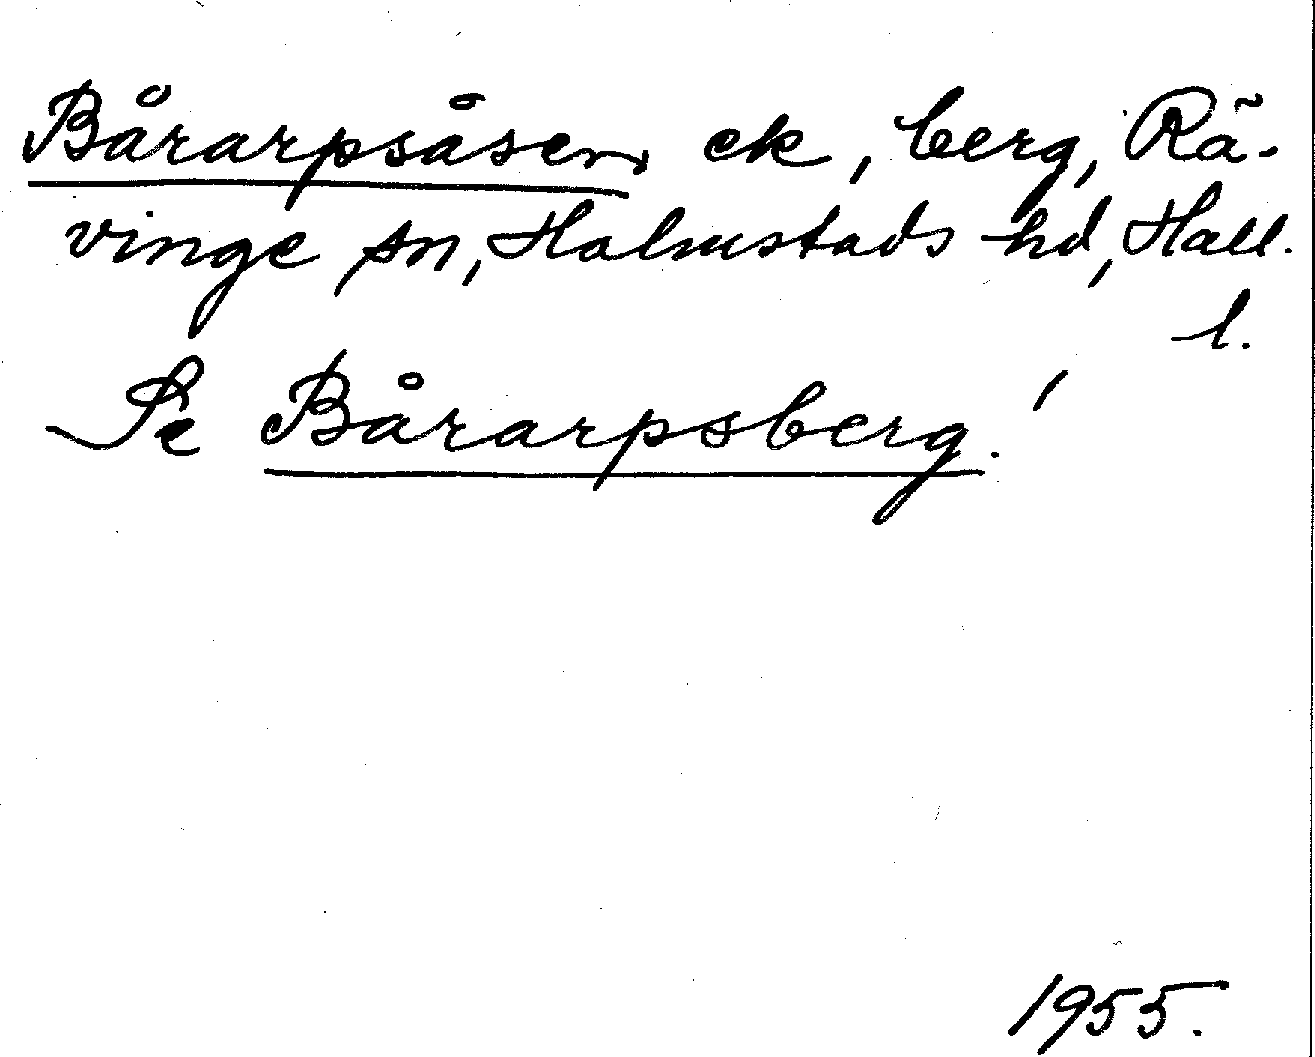 Bårarpsåsen, ek, berg, Rä-
vinge sn, Halmstads hd, Hall.
l.
Se Bårarpsberg!
1955.